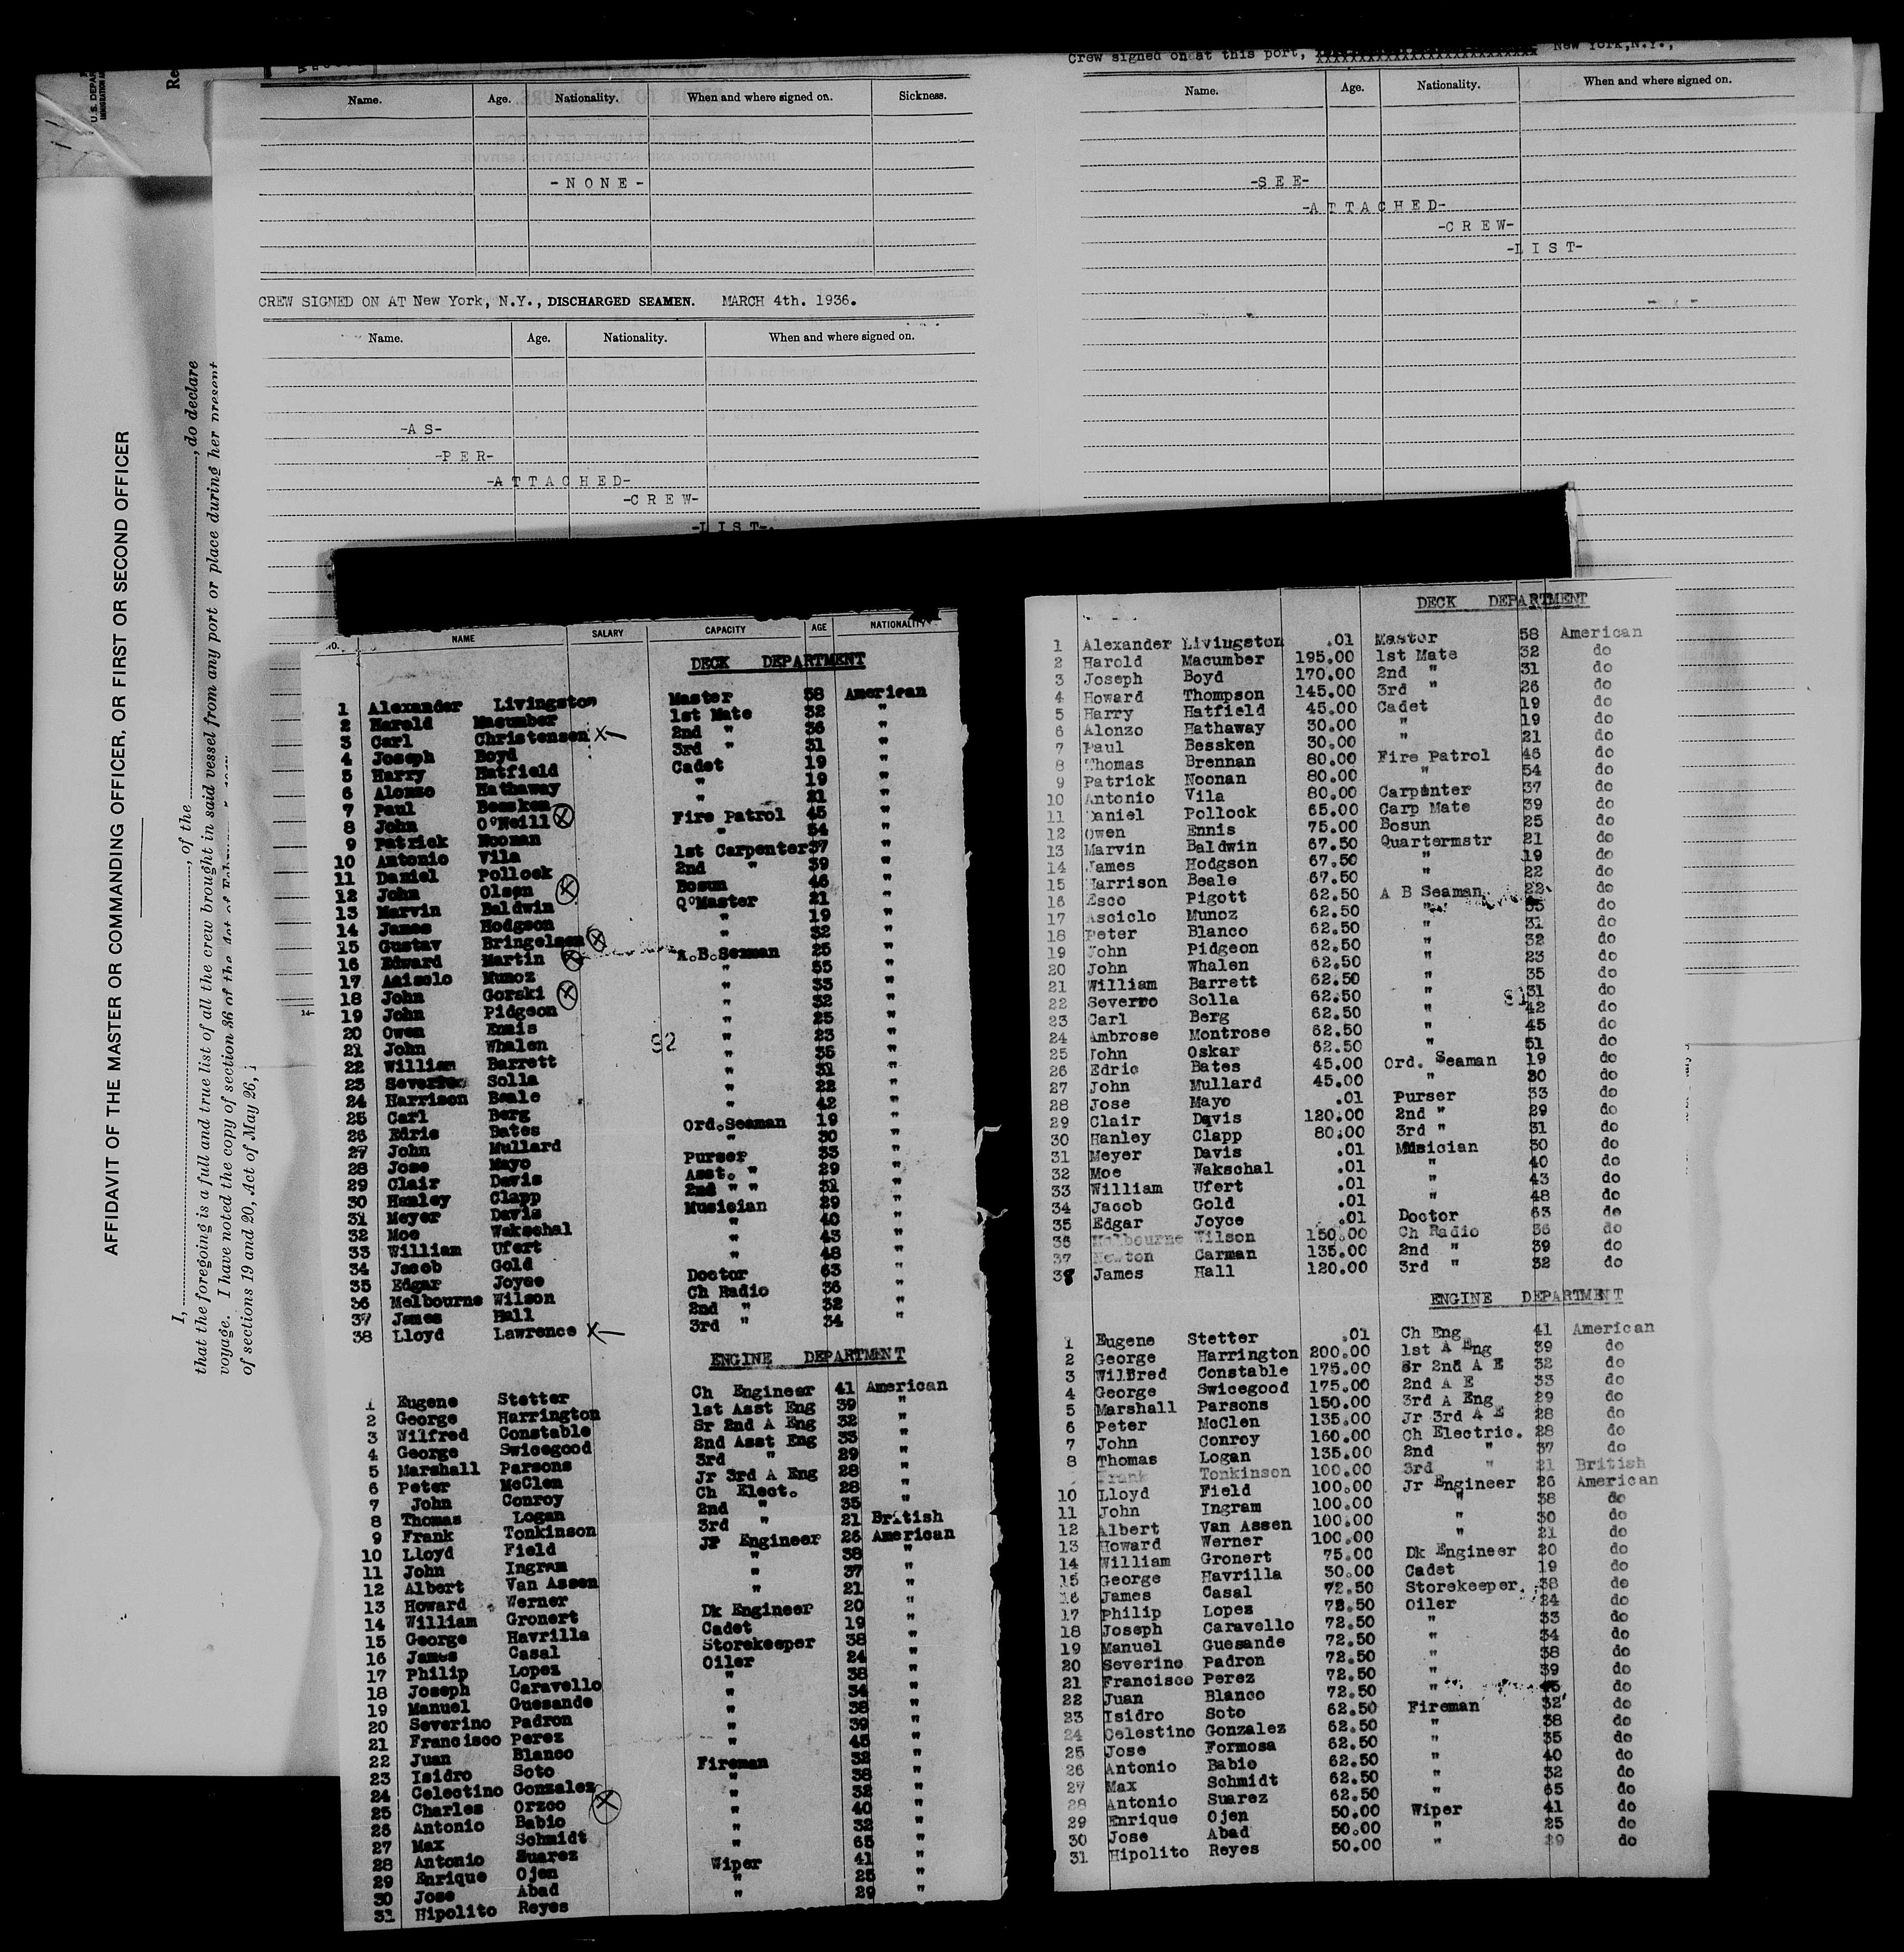 Crew signed on at this port, New York,N.Y.,
Name. Age. Nationality. When and where signed on. Sickness.
-NONE-
Name. Age. Nationality. When and where signed on.
-SEE-
-ATTACHED-
-CREW-
-LIST-
CREW SIGNED ON AT New York, N.Y., DISCHARGED SEAMEN. MARCH 4th. 1936.
Name. Age. Nationality. When and where signed on.
-AS-
-PER-
-ATTACHED-
-CREW-
-LIST-.
AFFIDAVIT OF THE MASTER OR COMMANDING OFFICER, OR FIRST OR SECOND OFFICER
I, , of the , do declare
that the foregoing is a full and true list of all the crew brought in said vessel from any port or place during her present
voyage. I have noted the copy of section 36 of the Act of
of sections 19 and 20, Act of May 26,
U.S. DEPAR
NO. NAME SALARY CAPACITY AGE NATIONALITY
DECK DEPARTMENT
1 Alexander Livingston Master 58 American
2 Harold Macumber 1st Mate 32 "
3 Carl Christensen X 2nd " 36 "
4 Joseph Boyd 3rd " 31 "
5 Harry Hatfield Cadet 19 "
6 Alonzo Hathaway " 19 "
7 Paul Bessken " 21 "
8 John O'Neill X Fire Patrol 45 "
9 Patrick Noonan " 54 "
10 Antonio Vila 1st Carpenter 37 "
11 Daniel Pollock 2nd " 39 "
12 John Olsen X Bosun 46 "
13 Marvin Baldwin Q°Master 21 "
14 James Hodgson " 19 "
15 Gustav Bringelsen X " 32 "
16 Edward Martin X A.B.Seaman 25 "
17 Asisolo Munoz " 35 "
18 John Gorski X " 33 "
19 John Pidgeon " 32 "
20 Owen Ennis " 25 "
21 John Whalen " 23 "
22 William Barrett " 35 "
23 Severino Solla " 31 "
24 Harrison Beale " 22 "
25 Carl Berg " 42 "
26 Edric Bates Ord.Seaman 19 "
27 John Mullard " 30 "
28 Jose Mayo Purser 33 "
29 Clair Davis Asst. " 29 "
30 Hanley Clapp 2nd " " 31 "
31 Meyer Davis Musician 29 "
32 Moe Wakschal " 40 "
33 William Ufert " 43 "
34 Jacob Gold " 48 "
35 Edgar Joyce Doctor 63 "
36 Melbourne Wilson Ch Radio 36 "
37 James Hall 2nd " 32 "
38 Lloyd Lawrence X 3rd " 34 "
92
ENGINE DEPARTMENT
1 Eugene Stetter Ch Engineer 41 American
2 George Harrington 1st Asst Eng 39 "
3 Wilfred Constable Sr 2nd A Eng 32 "
4 George Swicegood 2nd Asst Eng 33 "
5 Marshall Parsons 3rd " 29 "
6 Peter McClen Jr 3rd A Eng 28 "
7 John Conroy Ch Elect. 28 "
8 Thomas Logan 2nd " 35 "
9 Frank Tonkinson 3rd " 21 British
10 Lloyd Field Jr Engineer 26 American
11 John Ingram " 38 "
12 Albert Van Assen " 37 "
13 Howard Werner " 21 "
14 William Gronert Dk Engineer 20 "
15 George Havrilla Cadet 19 "
16 James Casal Storekeeper 38 "
17 Philip Lopez Oiler 24 "
18 Joseph Caravello " 38 "
19 Manuel Guesande " 34 "
20 Severino Padron " 38 "
21 Francisco Perez " 39 "
22 Juan Blanco " 45 "
23 Isidro Soto Fireman 32 "
24 Celestino Gonzalez " 38 "
25 Charles Orzco X " 32 "
26 Antonio Babio " 40 "
27 Max Schmidt " 32 "
28 Antonio Suarez " 65 "
29 Enrique Ojen Wiper 41 "
30 Jose Abad " 25 "
31 Hipolito Reyes " 29 "
DECK DEPARTMENT
1 Alexander Livingston .01 Master 58 American
2 Harold Macumber 195.00 1st Mate 32 do
3 Joseph Boyd 170.00 2nd " 31 do
4 Howard Thompson 145.00 3rd " 26 do
5 Harry Hatfield 45.00 Cadet 19 do
6 Alonzo Hathaway 30.00 " 19 do
7 Paul Bessken 30.00 " 21 do
8 Thomas Brennan 80.00 Fire Patrol 46 do
9 Patrick Noonan 80.00 " 54 do
10 Antonio Vila 80.00 Carpenter 37 do
11 Daniel Pollock 65.00 Carp Mate 39 do
12 Owen Ennis 75.00 Bosun 25 do
13 Marvin Baldwin 67.50 Quartermstr 21 do
14 James Hodgson 67.50 " 19 do
15 Harrison Beale 67.50 " 22 do
16 Esco Pigott 62.50 A B Seaman 22 do
17 Asciclo Munoz 62.50 " 35 do
18 Peter Blanco 62.50 " 31 do
19 John Pidgeon 62.50 " 32 do
20 John Whalen 62.50 " 23 do
21 William Barrett 62.50 " 35 do
22 Severno Solla 62.50 " 31 do
23 Carl Berg 62.50 " 42 do
24 Ambrose Montrose 62.50 " 45 do
25 John Oskar 62.50 " 51 do
26 Edric Bates 45.00 Ord. Seaman 19 do
27 John Mullard 45.00 " 30 do
28 Jose Mayo .01 Purser 33 do
29 Clair Davis 120.00 2nd " 29 do
30 Hanley Clapp 80.00 3rd " 31 do
31 Meyer Davis .01 Musician 30 do
32 Moe Wakschal .01 " 40 do
33 William Ufert .01 " 43 do
34 Jacob Gold .01 " 48 do
35 Edgar Joyce .01 Doctor 63 do
36 Melbourne Wilson 150.00 Ch Radio 36 do
37 Newton Carman 135.00 2nd " 39 do
38 James Hall 120.00 3rd " 32 do
ENGINE DEPARTMENT
1 Eugene Stetter .01 Ch Eng 41 American
2 George Harrington 200.00 1st A Eng 39 do
3 Wilfred Constable 175.00 Sr 2nd A E 32 do
4 George Swicegood 175.00 2nd A E 33 do
5 Marshall Parsons 150.00 3rd A Eng 29 do
6 Peter McClen 135.00 Jr 3rd A E 28 do
7 John Conroy 160.00 Ch Electric. 28 do
8 Thomas Logan 135.00 2nd " 37 do
Frank Tonkinson 100.00 3rd " 21 British
10 Lloyd Field 100.00 Jr Engineer 26 American
11 John Ingram 100.00 " 38 do
12 Albert Van Assen 100.00 " 30 do
13 Howard Werner 100.00 " 21 do
14 William Gronert 75.00 Dk Engineer 20 do
15 George Havrilla 30.00 Cadet 19 do
16 James Casal 72.50 Storekeeper 38 do
17 Philip Lopes 72.50 Oiler 24 do
18 Joseph Caravello 72.50 " 33 do
19 Manuel Guesande 72.50 " 34 do
20 Severino Padron 72.50 " 38 do
21 Francisco Perez 72.50 " 39 do
22 Juan Blanco 72.50 " 45 do
23 Isidro Soto 62.50 Fireman 32 do
24 Celestino Gonzalez 62.50 " 38 do
25 Jose Formosa 62.50 " 35 do
26 Antonio Babio 62.50 " 40 do
27 Max Schmidt 62.50 " 32 do
28 Antonio Suarez 62.50 " 65 do
29 Enrique Ojen 50.00 Wiper 41 do
30 Jose Abad 50.00 " 25 do
31 Hipolito Reyes 50.00 " 29 do